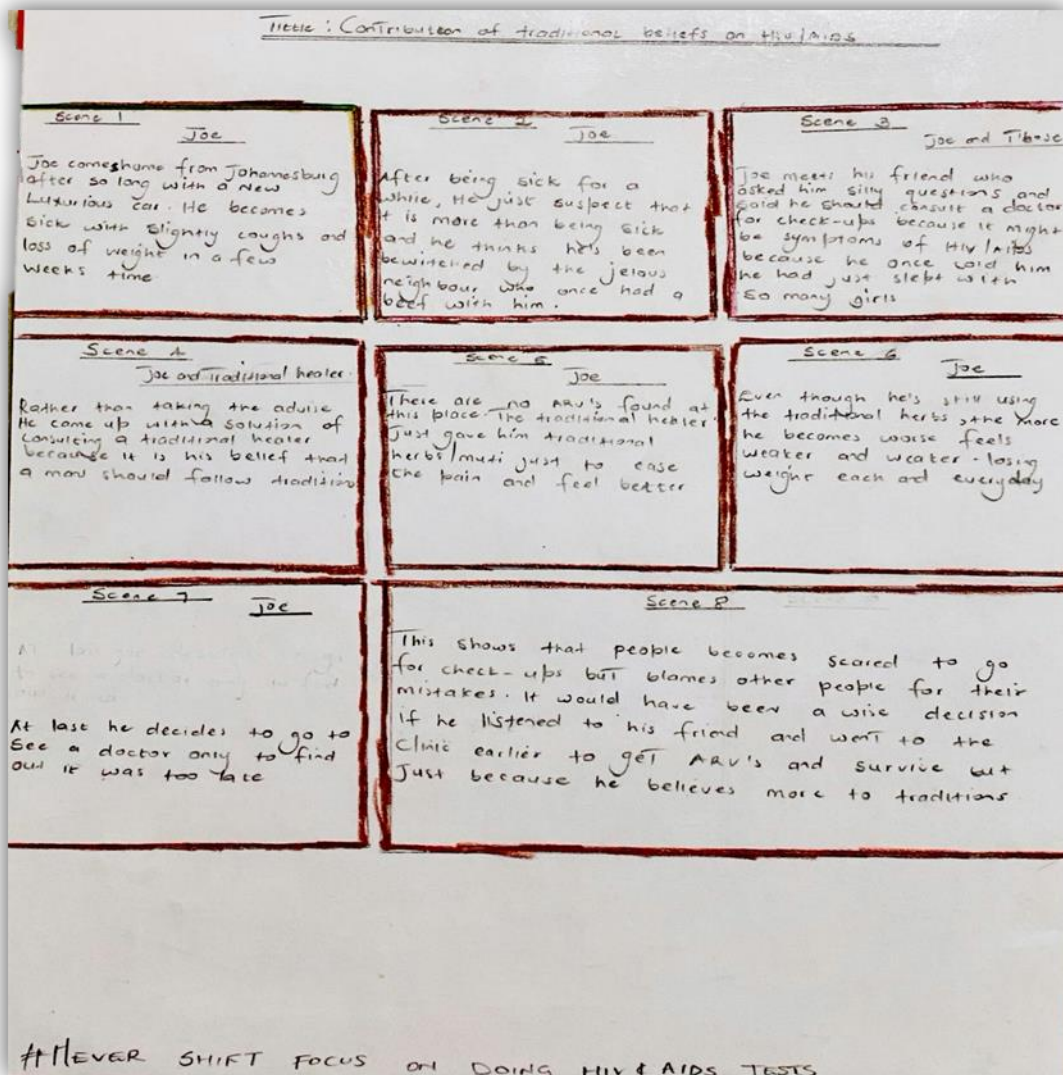 Tittle : Contribution of traditional beliefs on HIV/AIDS
Scene 1
Joe
Joe comes home from Johannesburg
after so long with a New
Luxurious car. He becomes
sick with slightly coughs and
loss of weight in a few
weeks time
Scene 2
Joe
After being sick for a
while, He just suspect that
it is more than being sick
and he thinks he's been
bewitched by the jelous
neighbour who once had a
beef with him.
Scene 3
Joe and
Joe meets his friend who
asked him silly questions and
said he should consult a doctor
for check-ups because it might
be symptoms of HIV/AIDS
because he once told him
he had just slept with
so many girls
Scene 4
Joe and Traditional healer.
Rather than taking the advise
He come up with a solution of
consulting a traditional healer
because it is his belief that
a man should follow tradition
Scene 5
Joe
There are no ARV's found at
this place. The traditional healer
Just gave him traditional
herbs/muti just to ease
the pain and feel better
Scene 6
Joe
Even though he's still using
the traditional herbs, the more
he becomes worse feels
weaker and weaker. losing
weight each and everyday
Scene 7
Joe
At last he decides to go to
see a doctor only to find
out it was too late
Scene 8
This shows that people becomes scared to go
for check-ups but blames other people for their
mistakes. It would have been a wise decision
if he listened to his friend and went to the
Clinic earlier to get ARV's and survive but
Just because he believes more to traditions
#NEVER SHIFT FOCUS ON DOING HIV & AIDS TESTS